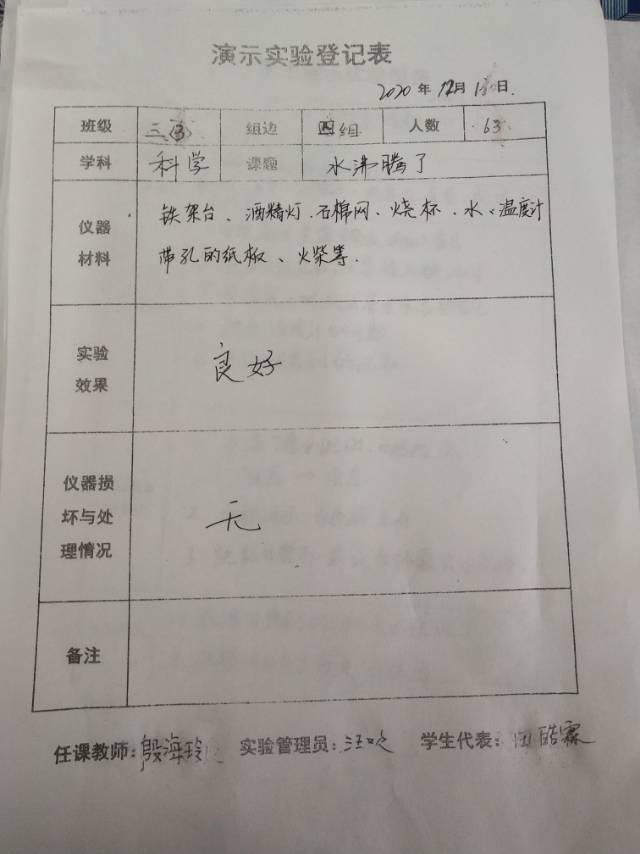 演示实验登记表
2020年12月 日.
班级 三(3) 组边 四组 人数 63
学科 科学 课题 水沸腾了
仪器材料 铁架台、酒精灯、石棉网、烧杯、水、温度计
带孔的纸板、火柴等.
实验
效果
良好
仪器损
坏与处
理情况
无
备注
任课教师:殷海玲 实验管理员:汪 学生代表: 皓霖